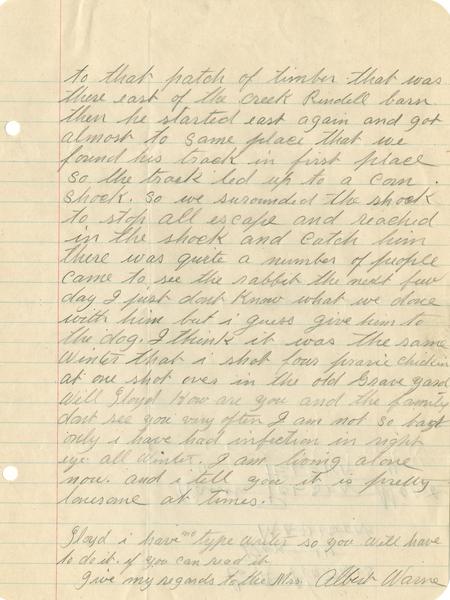 to that patch of timber that was
there east of the creek Rundell barn
then he started east again and got
almost to same place that we
found his track in first place
so the track led up to a corn
shock. so we surounded the shock
to stop all escape and reached
in the shock and catch him
there was quite a number of people
came to see the rabbit the next few
day I just dont know what we done
with him but i guess give him to
the dog. I think it was the same
winter that i shot four prarie chicken
at one shot over in the old Grave yard
Will Floyd How are you and the family
dont see you very often I am not so bad
only i have had infection in right
eye all winter. I am living alone
now. and i tell you it is pretty
lonesome at times.
Floyd i have no type writer so you will have
to do it. if you can read it
Give my regards to the Mrs. Albert Warne